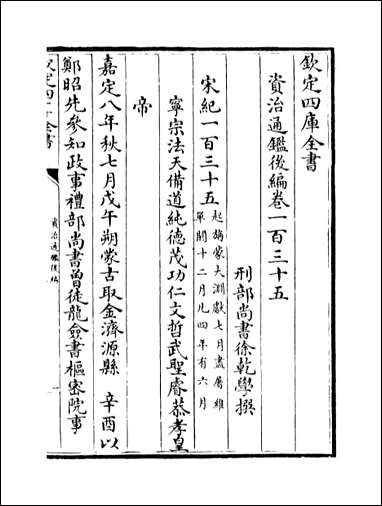 欽定四庫全書
資治通鑑後編卷一百三十五
刑部尚書徐乾學撰
宋紀一百三十五 起旃蒙大淵獻七月盡屠維
單閼十二月凡四年有六月
寧宗法天備道純德茂功仁文哲武聖睿恭孝皇
帝
嘉定八年秋七月戊午朔蒙古取金濟源縣 辛酉以
鄭昭先參知政事禮部尚書曾從龍僉書樞密院事
欽定四庫全書
資治通鑑後編